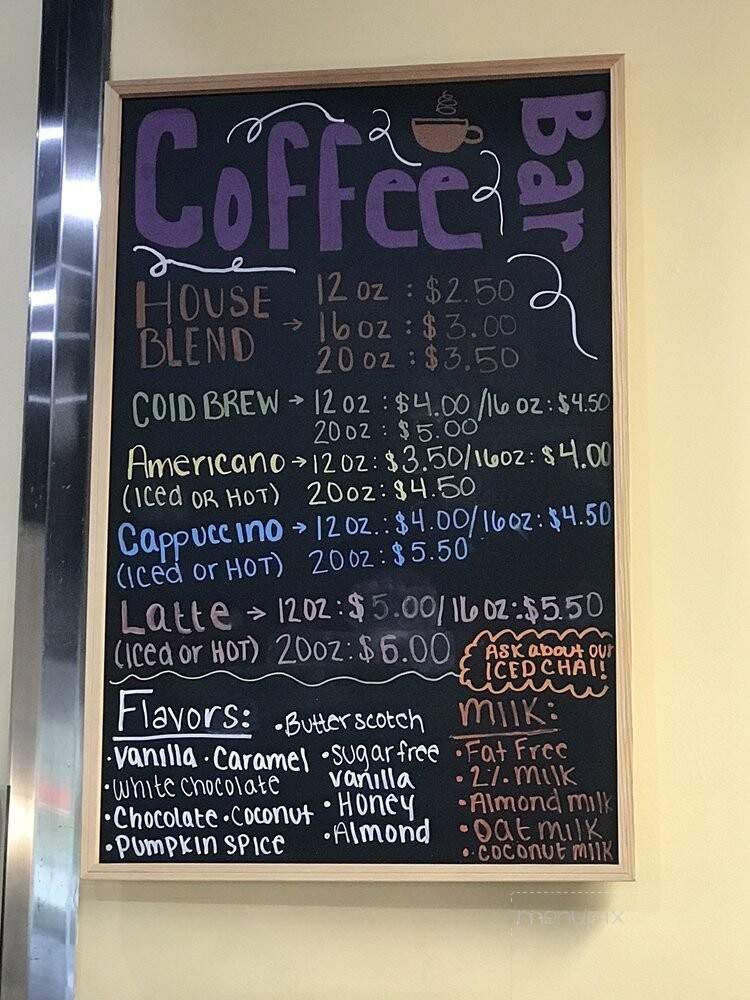 Coffee Bar
HOUSE BLEND → 12 oz : $2.50
16 oz : $3.00
20 oz : $3.50
COLD BREW → 12 oz : $4.00 / 16 oz : $4.50
20 oz : $5.00
Americano → 12 oz : $3.50 / 16 oz : $4.00
(Iced OR HOT) 20 oz : $4.50
Cappuccino → 12 oz. : $4.00 / 16 oz : $4.50
(Iced or HOT) 20 oz : $5.50
Latte → 12 oz : $5.00 / 16 oz : $5.50
(Iced or HOT) 20 oz : $6.00
ASK about our
ICED CHAI!
Flavors:
•Butterscotch
•Vanilla •Caramel
•White chocolate
•Chocolate •Coconut
•Pumpkin Spice
•sugar free
vanilla
•Honey
•Almond
milk:
•Fat Free
•2% milk
•Almond milk
•Oat milk
•coconut milk
menupix